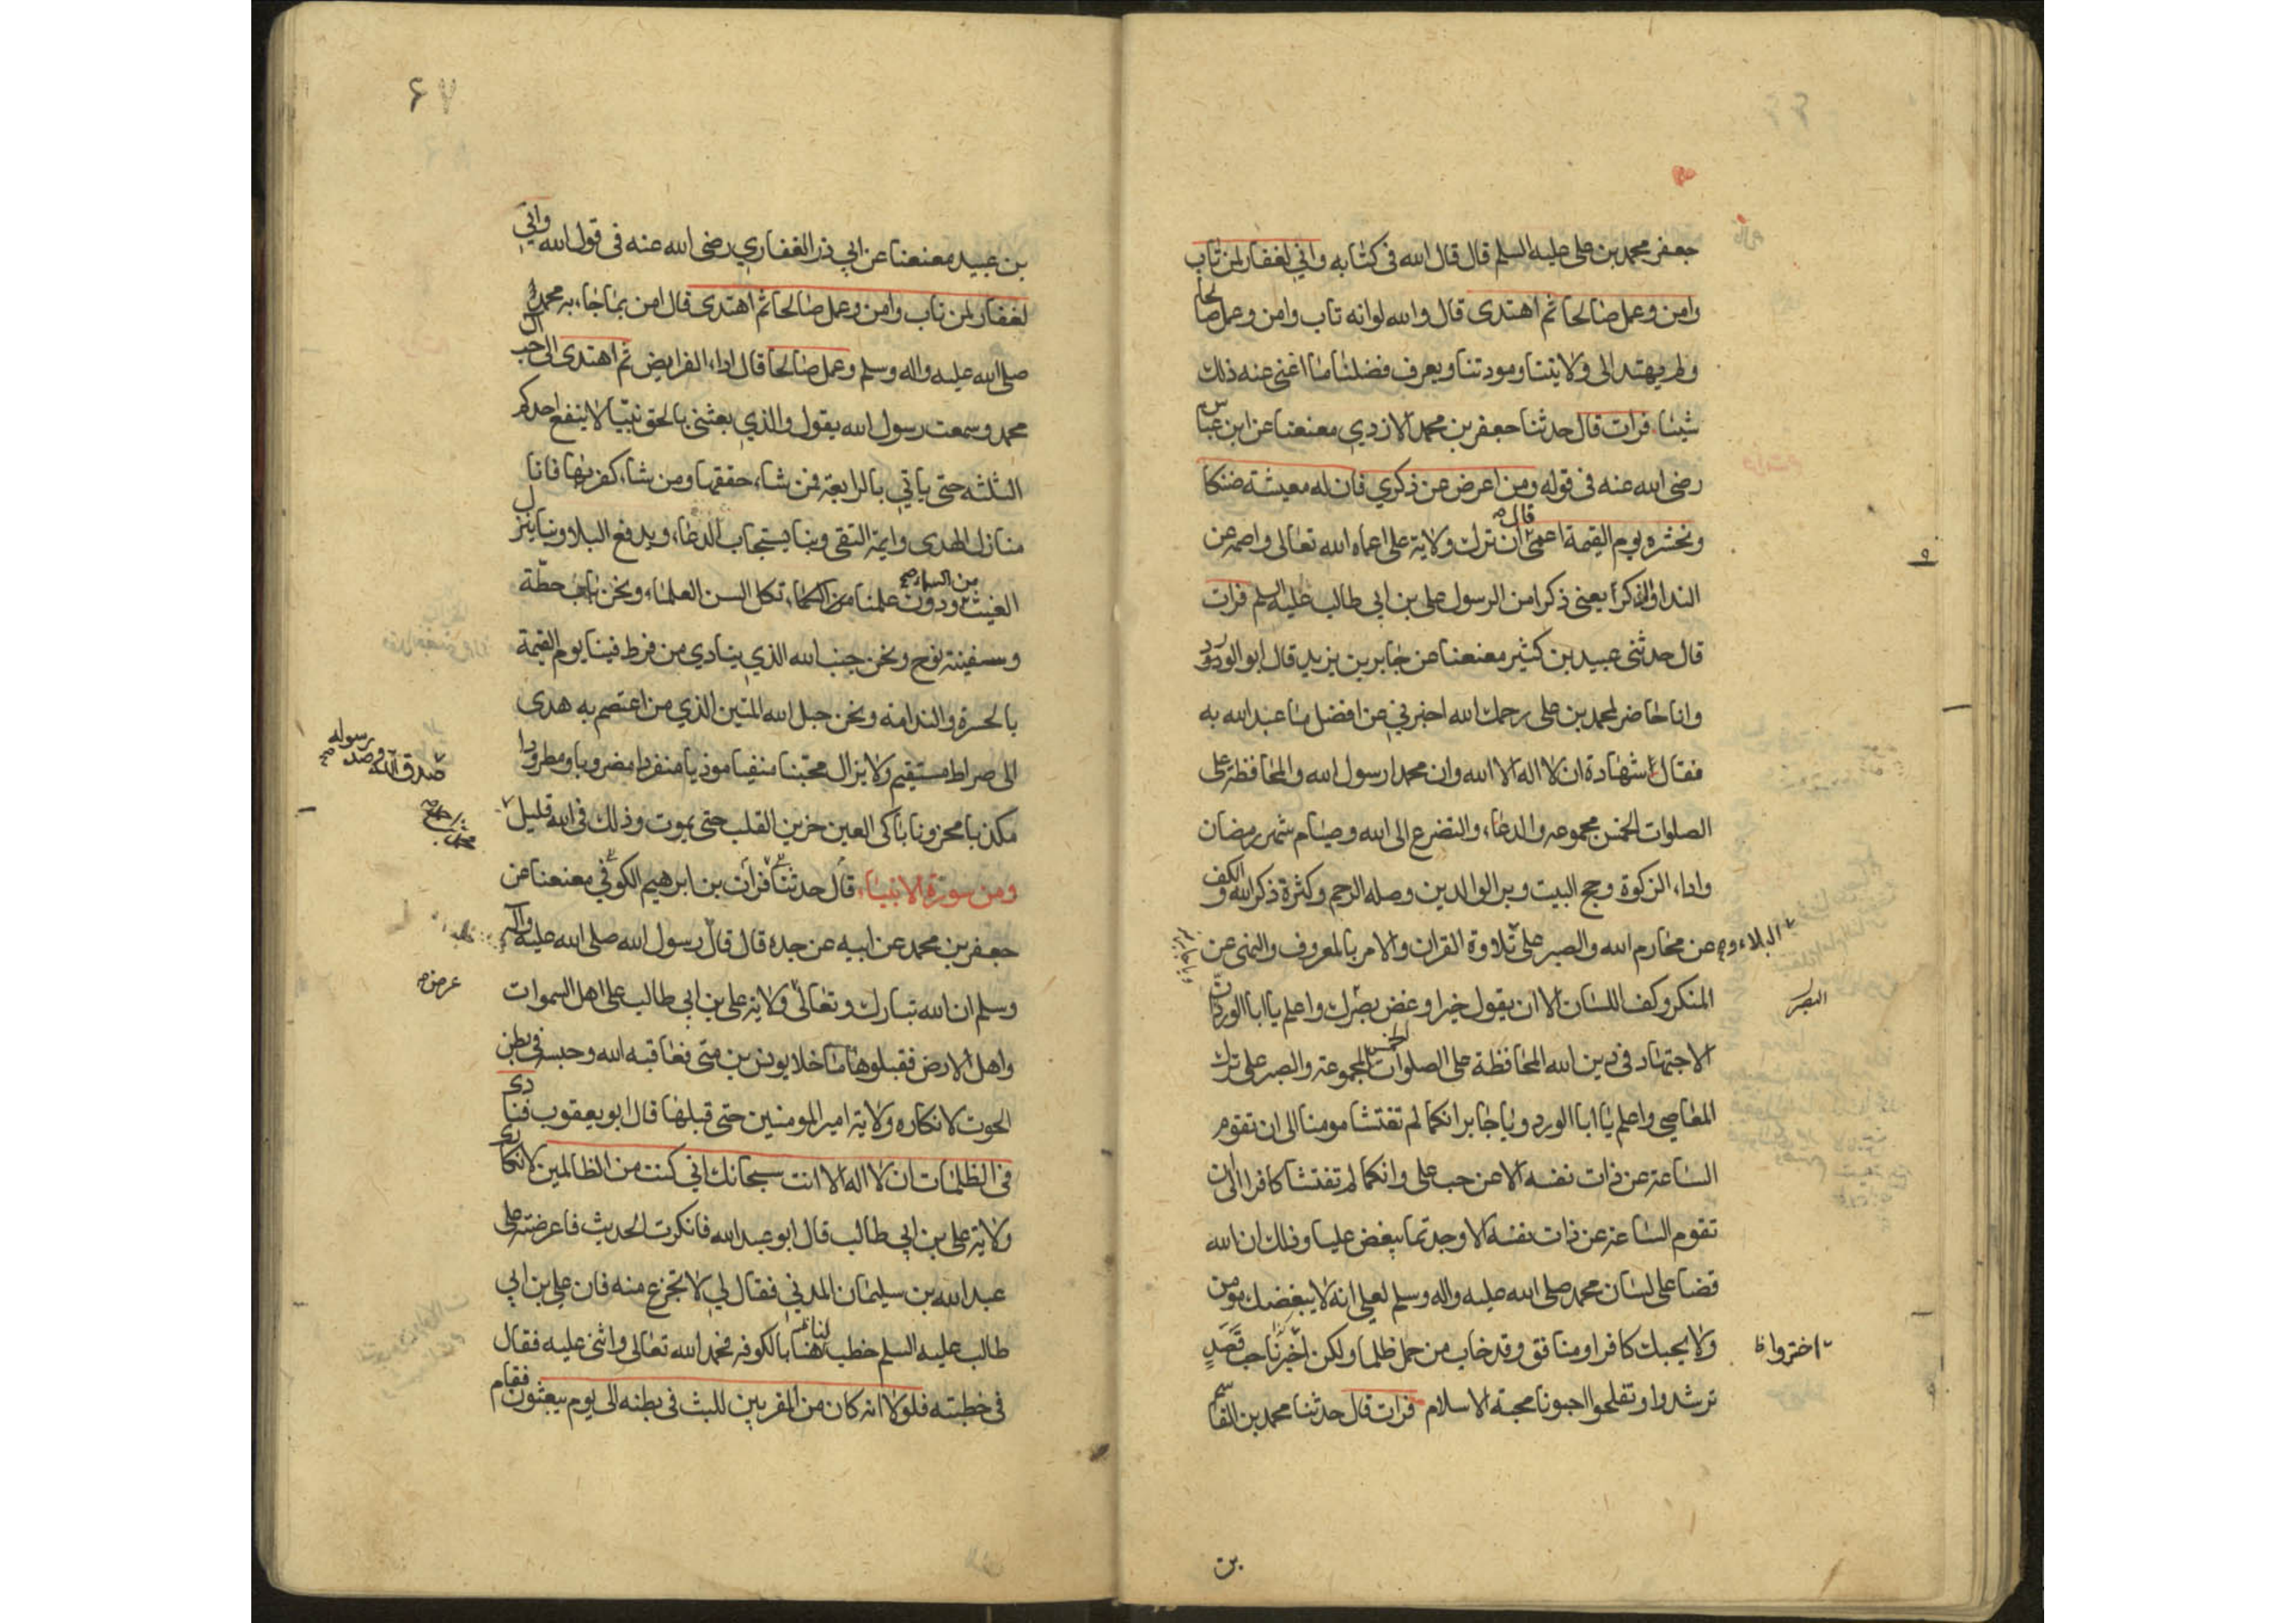 جعفر محمد بن علي عليه السلم قال قال الله فى كتابه واني لغفار لمن تاب
وامن وعمل صالحا ثم اهتدى قال والله لوانه تاب وامن وعمل صالحا
ولم يهتد الى ولايتنا ومودتنا ويعرف فضلنا ما اغنى عنه ذلك
شيئا فرات قال حدثنا جعفر بن محمد الازدي معنعنا عن ابن عباس
رضى الله عنه فى قوله ومن اعرض عن ذكري فان له معيشة ضنكا
ونحشره يوم القيمة اعمى قال ان ترك ولاية على اعماه الله تعالى واصمه عن
الندا والذكر يعنى ذكرا من الرسول على بن ابى طالب عليه السلم فرات
قال حدثنى عبيد بن كثير معنعنا عن جابر بن يزيد قال ابو الورد
وانا حاضر لمحمد بن على رحمك الله اخبرني عن افضل ما عبد الله به
فقال شهادة ان لا اله الا الله وان محمدا رسول الله والمحافظة على
الصلوات الخمس مجموعه والدعاء والتضرع الى الله وصيام شهر رمضان
واداء الزكوة وحج البيت وبر الوالدين وصله الرحم وكثرة ذكر الله والكف
عن محارم الله والصبر على البلاء و تلاوة القران والامر بالمعروف والنهى عن
المنكر وكف اللسان الا ان يقول خيرا وغض بصرك واعلم يا ابا الورد ان
البصر
الاجتهاد فى دين الله المحافظة على الصلوات الخمس المجموعة والصبر على ترك
المعاصي واعلم يا ابا الورد ويا جابر انكما لم تفتشا مومنا الى ان تقوم
الساعة عن ذات نفسه الا عن حب على وانكما لم تفتشا كافرا الى ان
تقوم الساعة عن ذات نفسه الا وجدتما يبغض عليا وذلك ان الله
قضا على لسان محمد صلى الله عليه واله وسلم لعلى انه لا يبغضك مومن
ولا يحبك كافر او منافق وقد خاب من حمل ظلما ولكن اخبرنا حب قصد
اختروا
ترشدوا وتفلحوا احبونا محبة الاسلام فرات قال حدثنا محمد بن القاسم
بن
٦٧
بن عبيد معنعنا عن ابي ذر الغفاري رضى الله عنه فى قول الله واني
لغفار لمن تاب وامن وعمل صالحا ثم اهتدى قال امن بما جاء به محمد
صلى الله عليه واله وسلم وعمل صالحا قال اداء الفرايض ثم اهتدى الى حب ال
محمد وسمعت رسول الله يقول والذي بعثنى بالحق نبيا لا ينفع احدكم
الثلثه حتى ياتي بالرابعة فمن شاء حققها ومن شاء كفر بها فانا
منازل الهدى وايمة التقى وبنا يستجاب الدعاء ويدفع البلا وبنا ينزل
الغيث من السماء ودون علمنا تكل السن العلماء ونحن باب حطة
وسفينة نوح ونحن جنب الله الذي ينادي من فرط فينا يوم القيمة
بالحسرة والندامة ونحن حبل الله المتين الذي من اعتصم به هدى
الى صراط مستقيم ولا يزال محبنا منفيا موذيا منفردا مضروبا ومطرودا
مكذبا محزونا باكى العين حزين القلب حتى يموت وذلك فى الله قليل
صدق الله وصدق رسوله
ومن سورة الانبياء قال حدثنا فرات بن ابرهيم الكوفي معنعنا عن
جعفر بن محمد عن ابيه عن جده قال قال رسول الله صلى الله عليه واله
وسلم ان الله تبارك وتعالى ولاية على بن ابى طالب على اهل السموات
عرض
واهل الارض فقبلوها ما خلا يونس بن متى فعاقبه الله وحبسه فى بطن
الحوت لانكاره ولاية امير المومنين حتى قبلها قال ابو يعقوب فنادى
فى الظلمات ان لا اله الا انت سبحانك اني كنت من الظالمين لانكاري
ولاية على بن ابى طالب قال ابو عبد الله فانكرت الحديث فاعرضته على
عبد الله بن سليمان المدني فقال لي لا تجزع منه فان على بن ابى
طالب عليه السلم خطب لنا بالكوفه فحمد الله تعالى واثنى عليه فقال
فى خطبته فلولا انه كان من المقربين للبث فى بطنه الى يوم يبعثون فقام